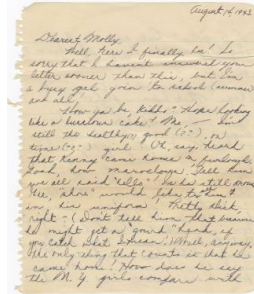 August 14, 1943
Dearest Molly,
Well, here I finally am! So
sorry that I haven't answered your
letter sooner than this, but I'm
a busy gal going to school (summer
and all.
How ya be Kiddo? Hope looking
like a luscious cake? Me — I'm
still the healthy, good (?-?), ole
time (-?-) girl! Oh, say, heard
that Kenny came home on furlough.
Gosh, how marvelous. Tell him
we all said "hello". Is he still
he, when would like to
in his uniform. Pretty slick
right - (Don't tell him that because
he might get a "gourd" head, if
you catch what I mean.) Well, anyway,
the only thing that counts is that he
came home! How does he say
the N.Y. girls compare with